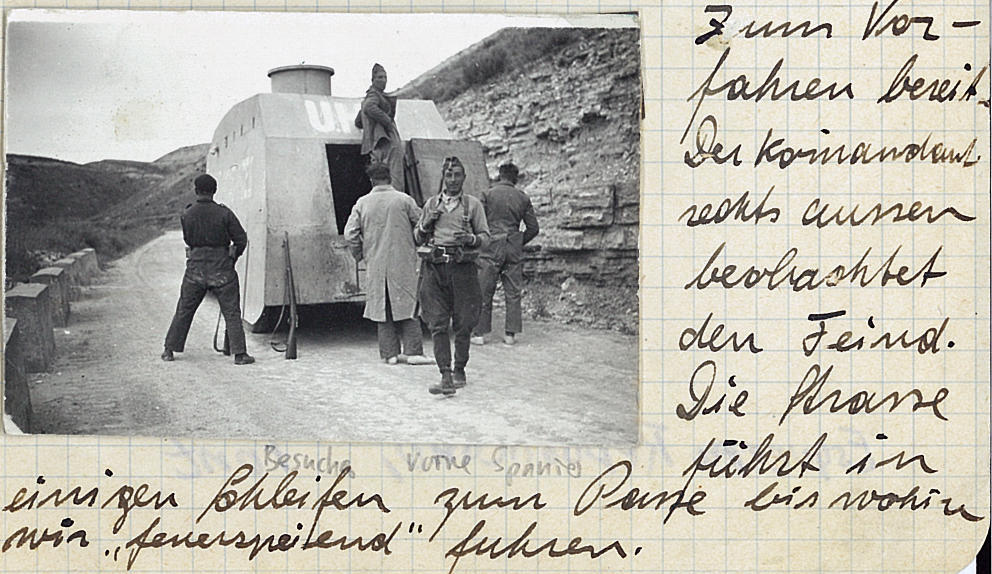 U.H
Zum Vor-
fahren bereit.
Der Komandant
rechts aussen
beobachtet
den Feind.
Die Strasse
führt in
Besuche vorne Spanier
einigen Schleifen zum Passe bis wohin
wir „feuerspeiend" fuhren.